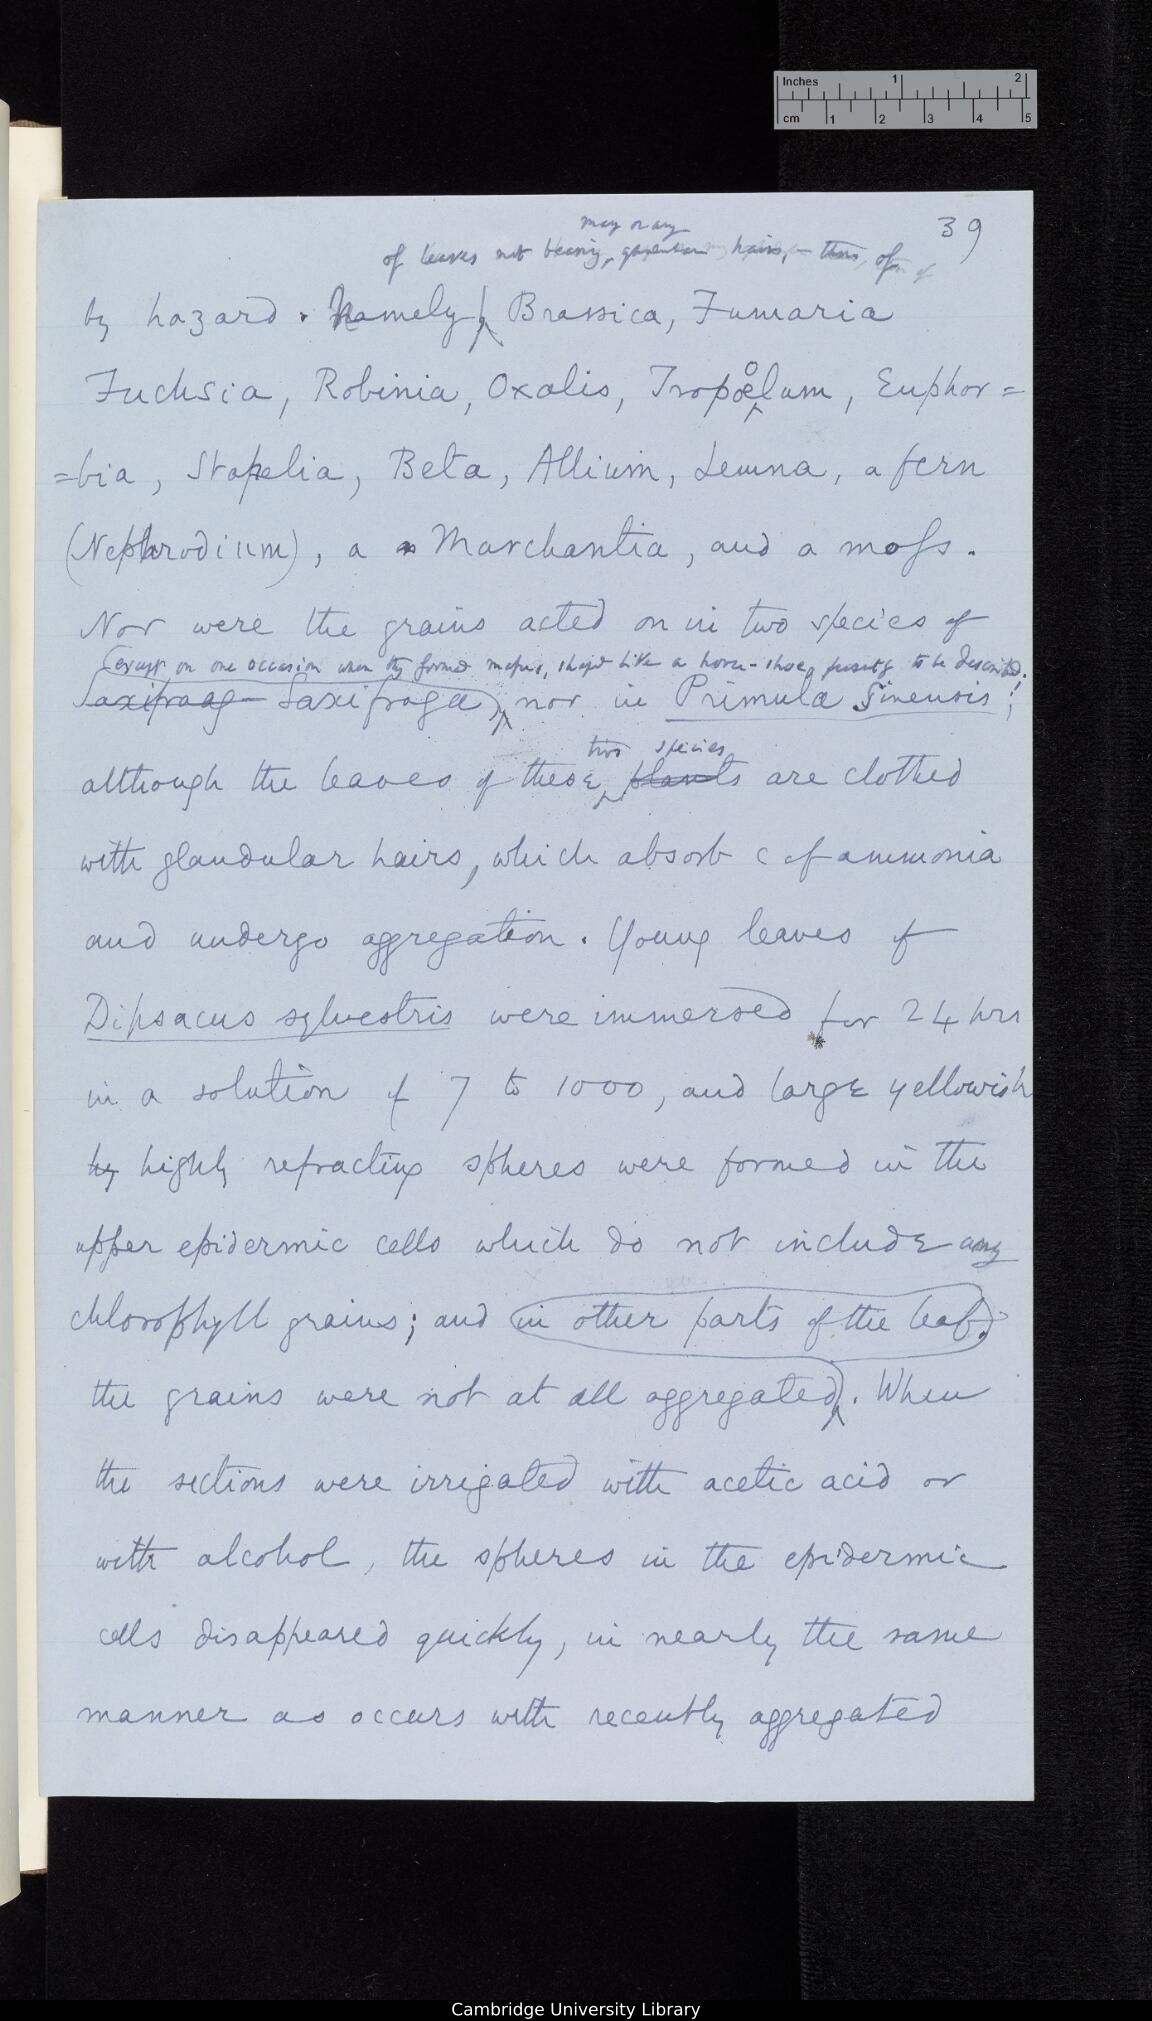 Inches 1 2
cm 1 2 3 4 5
39
may or any
of leaves not bearing, hairs, – thus, of
by hazard. Namely Brassica, Fumaria
Fuchsia, Robinia, Oxalis, Tropœolum, Euphor=
=bia, Stapelia, Beta, Allium, Lemna, a fern
(Nephrodium), a Marchantia, and a moss.
Nor were the grains acted on in two species of
(except on one occasion when they formed masses, shaped like a horse-shoe, presently to be described.
Saxifrag Saxifraga), nor in Primula Sinensis;
two species
although the leaves of these plants are clothed
with glandular hairs, which absorb c of ammonia
and undergo aggregation. Young leaves of
Dipsacus sylvestris were immersed for 24 hrs
in a solution of 7 to 1000, and large yellowish
hy highly refracting spheres were formed in the
upper epidermic cells which do not include any
chlorophyll grains; and in other parts of the leaf.
the grains were not at all aggregated. When
the sections were irrigated with acetic acid or
with alcohol, the spheres in the epidermic
cells disappeared quickly, in nearly the same
manner as occurs with recently aggregated
Cambridge University Library